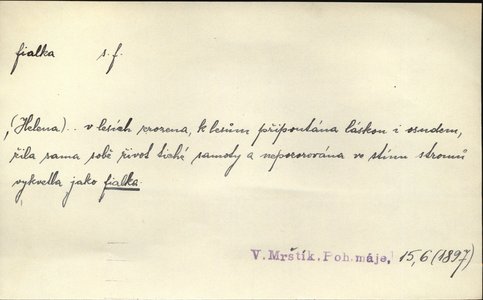 fialka s. f.
(Helena).. v lesích zrozena, k lesům připoutána láskou i osudem,
žila sama sobě život tiché samoty a nepozorována ve stínu stromů
vykvetla jako fialka.
V. Mrštík. Poh. máje, 15, 6 (1897)